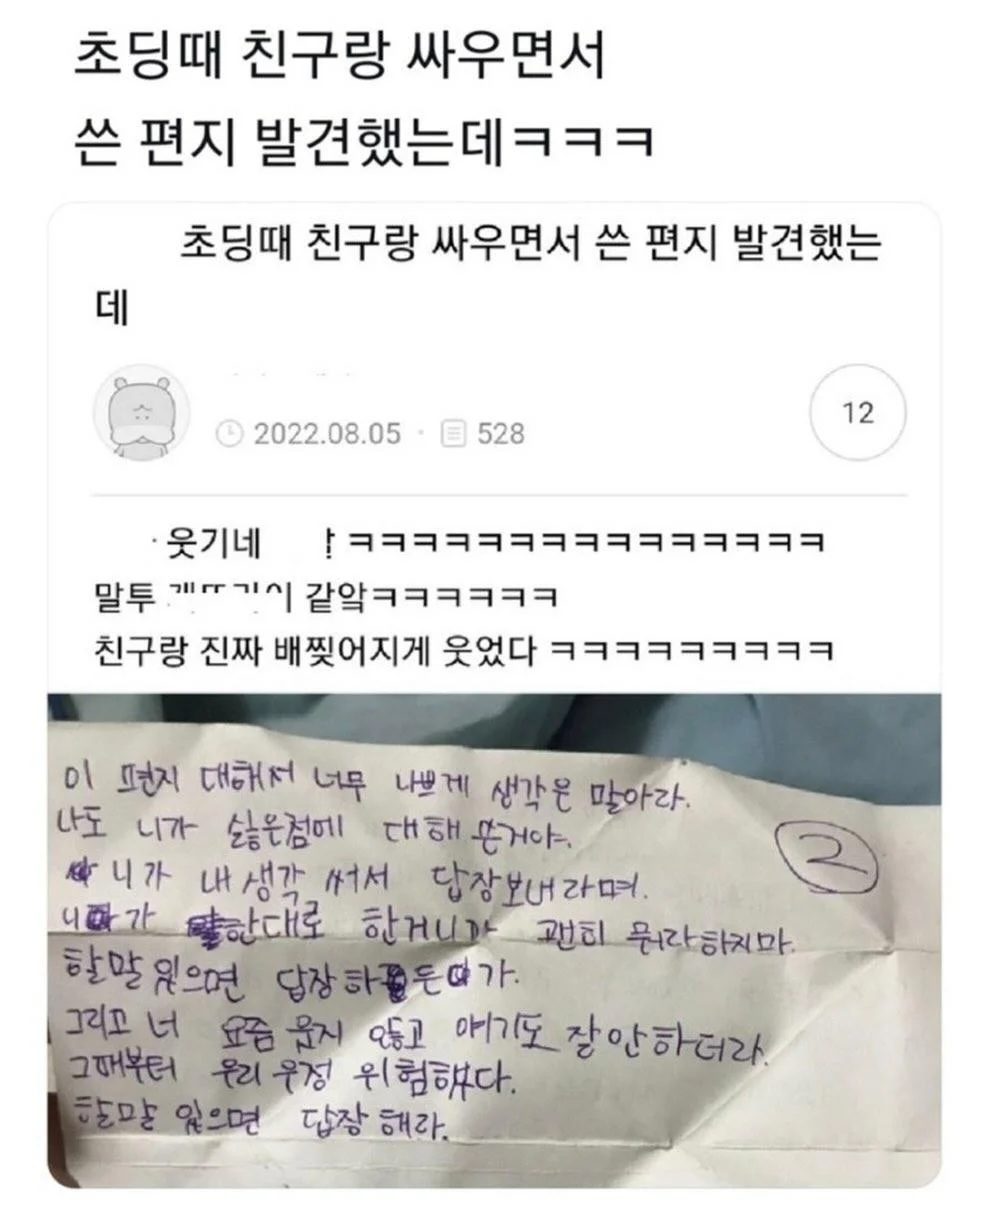 초딩때 친구랑 싸우면서
쓴 편지 발견했는데ㅋㅋㅋ
초딩때 친구랑 싸우면서 쓴 편지 발견했는
데
12
2022.08.05 · 528
웃기네 ㅋㅋㅋㅋㅋㅋㅋㅋㅋㅋㅋㅋㅋㅋㅋ
말투 같앜ㅋㅋㅋㅋㅋㅋ
친구랑 진짜 배찢어지게 웃었다 ㅋㅋㅋㅋㅋㅋㅋㅋㅋ
이 편지 대해서 너무 나쁘게 생각은 말아라.
나도 니가 싫은점에 대해 쓴거야.
니가 내 생각 써서 답장보내라며.
니가 한대로 한거니가 괜히 뭐라하지마.
할말 있으면 답장하든가.
그리고 너 요즘 웃지 않고 얘기도 잘 안하더라.
그때부터 우리 우정 위험했다.
할말 있으면 답장 해라.
2